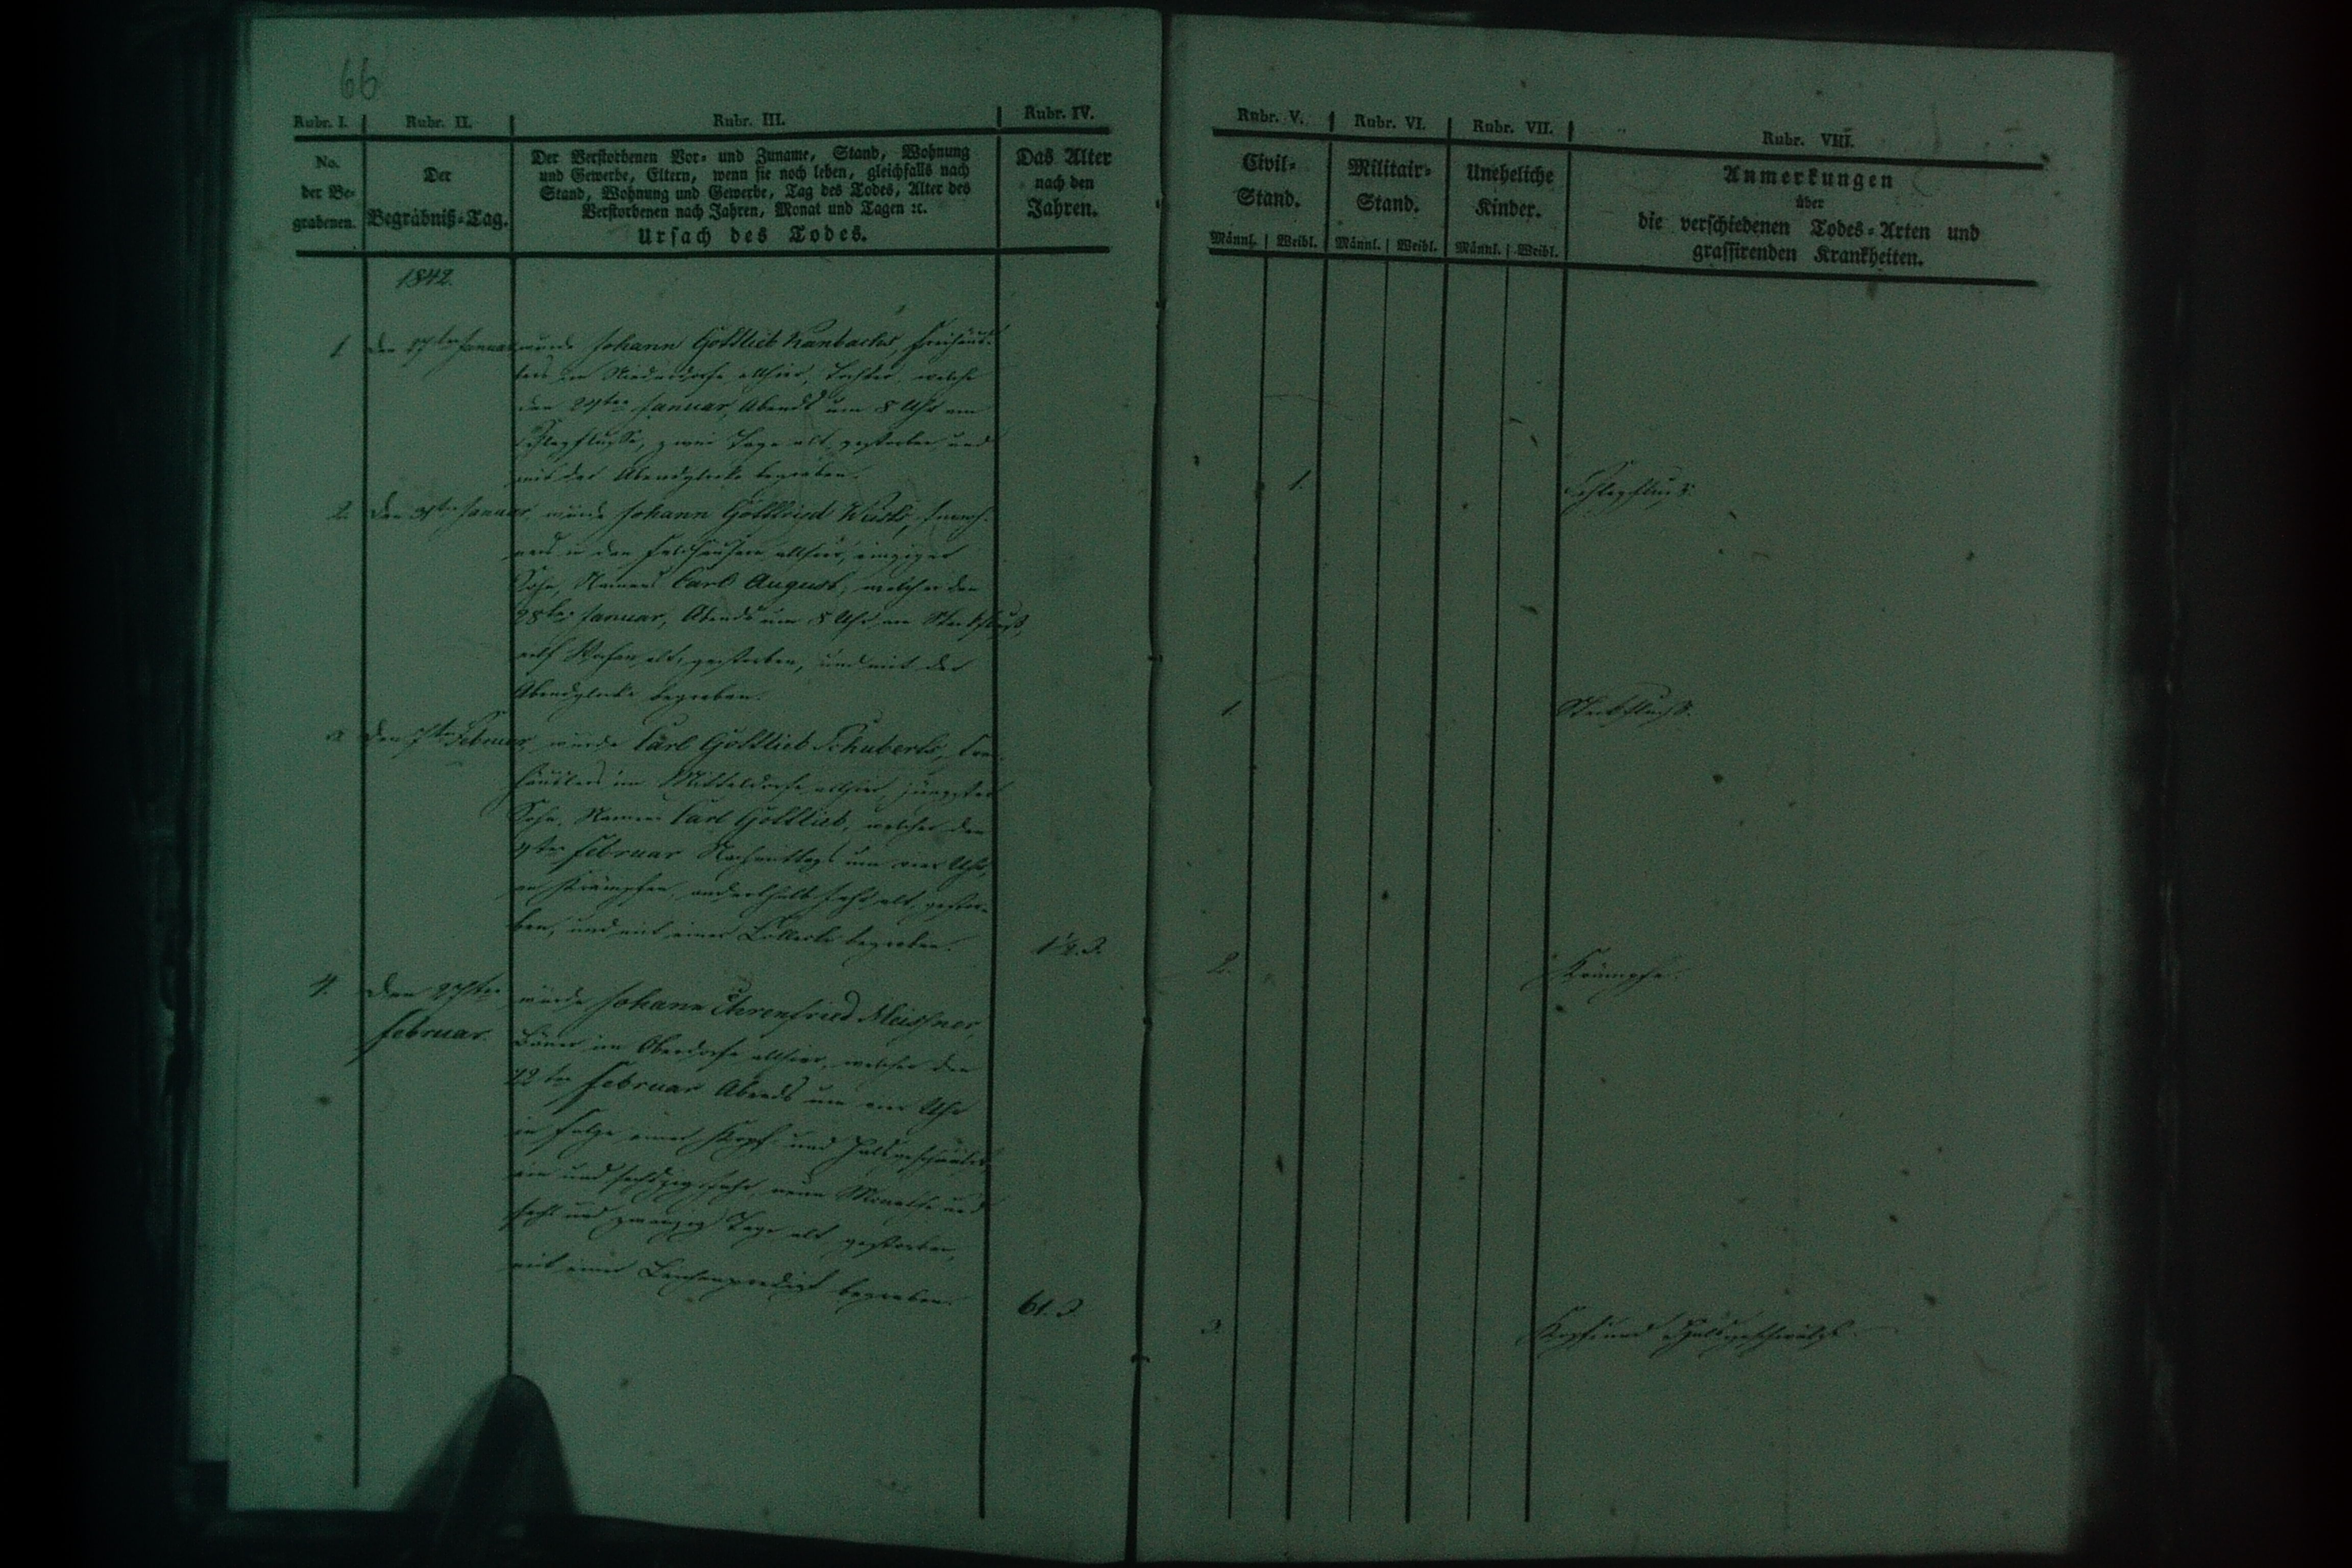 66
Rubr. I.
Rubr. II.
Rubr. III.
Rubr. IV.
No.
der Be-
grabenen.
Der
Begräbniß-Tag.
Der Verstorbenen Vor- und Zuname, Stand, Wohnung
und Gewerbe, Eltern, wenn sie noch leben, gleichfalls nach
Stand, Wohnung und Gewerbe, Tag des Todes, Alter des
Verstorbenen nach Jahren, Monat und Tagen ꝛc.
Ursach des Todes.
Das Alter
nach den
Jahren.
1842.
1. Den 27ten Januar wurde Johann Gottlieb Kanbachs, Freihäus-
lers im Niederdorfe allhier, Tochter, welche
den 24ten Januar, Abends um 8 Uhr am
Schlagflusse, zwei Tage alt gestorben, und
mit der Abendglocke begraben.
2. Den Januar, wurde Johann Gottfried
in den allhier, einziger
Sohn, Namens Carl August, welcher den
28ten Januar, Abends um 8 Uhr, am Steckfluß,
elf Wochen alt, gestorben, und mit der
Abendglocke begraben.
3. Den 7ten Februar, wurde Carl Gottlieb Schuberts, Frei-
häuslers im Mitteldorfe allhier, jüngster
Sohn, Namens Carl Gottlieb, welcher den
Februar Nachmittags um vier Uhr,
an Krämpfen, anderthalb Jahr alt, gestor-
ben, und mit einer begraben.
1½. J.
4. Den 27ten
Februar.
wurde Johann Ehrenfried Meissner,
Bauer im Oberdorfe allhier, welcher den
22ten Februar Abends um Uhr
in Folge einer Kopf- und Halsgeschwulst,
ein und sechzig Jahr, neun Monathe und
sechs und zwanzig Tage alt gestorben,
mit einer Leichenpredigt begraben.
61. J.
Rubr. V.
Rubr. VI.
Rubr. VII.
Rubr. VIII.
Civil-
Stand.
Militair-
Stand.
Uneheliche
Kinder.
Anmerkungen
über
die verschiedenen Todes-Arten und
grassirenden Krankheiten.
Männl. Weibl. Männl. Weibl. Männl. Weibl.
1. Schlagfluß.
1. Steckfluß.
2. Krämpfe.
3. Kopf- und Halsgeschwulst.